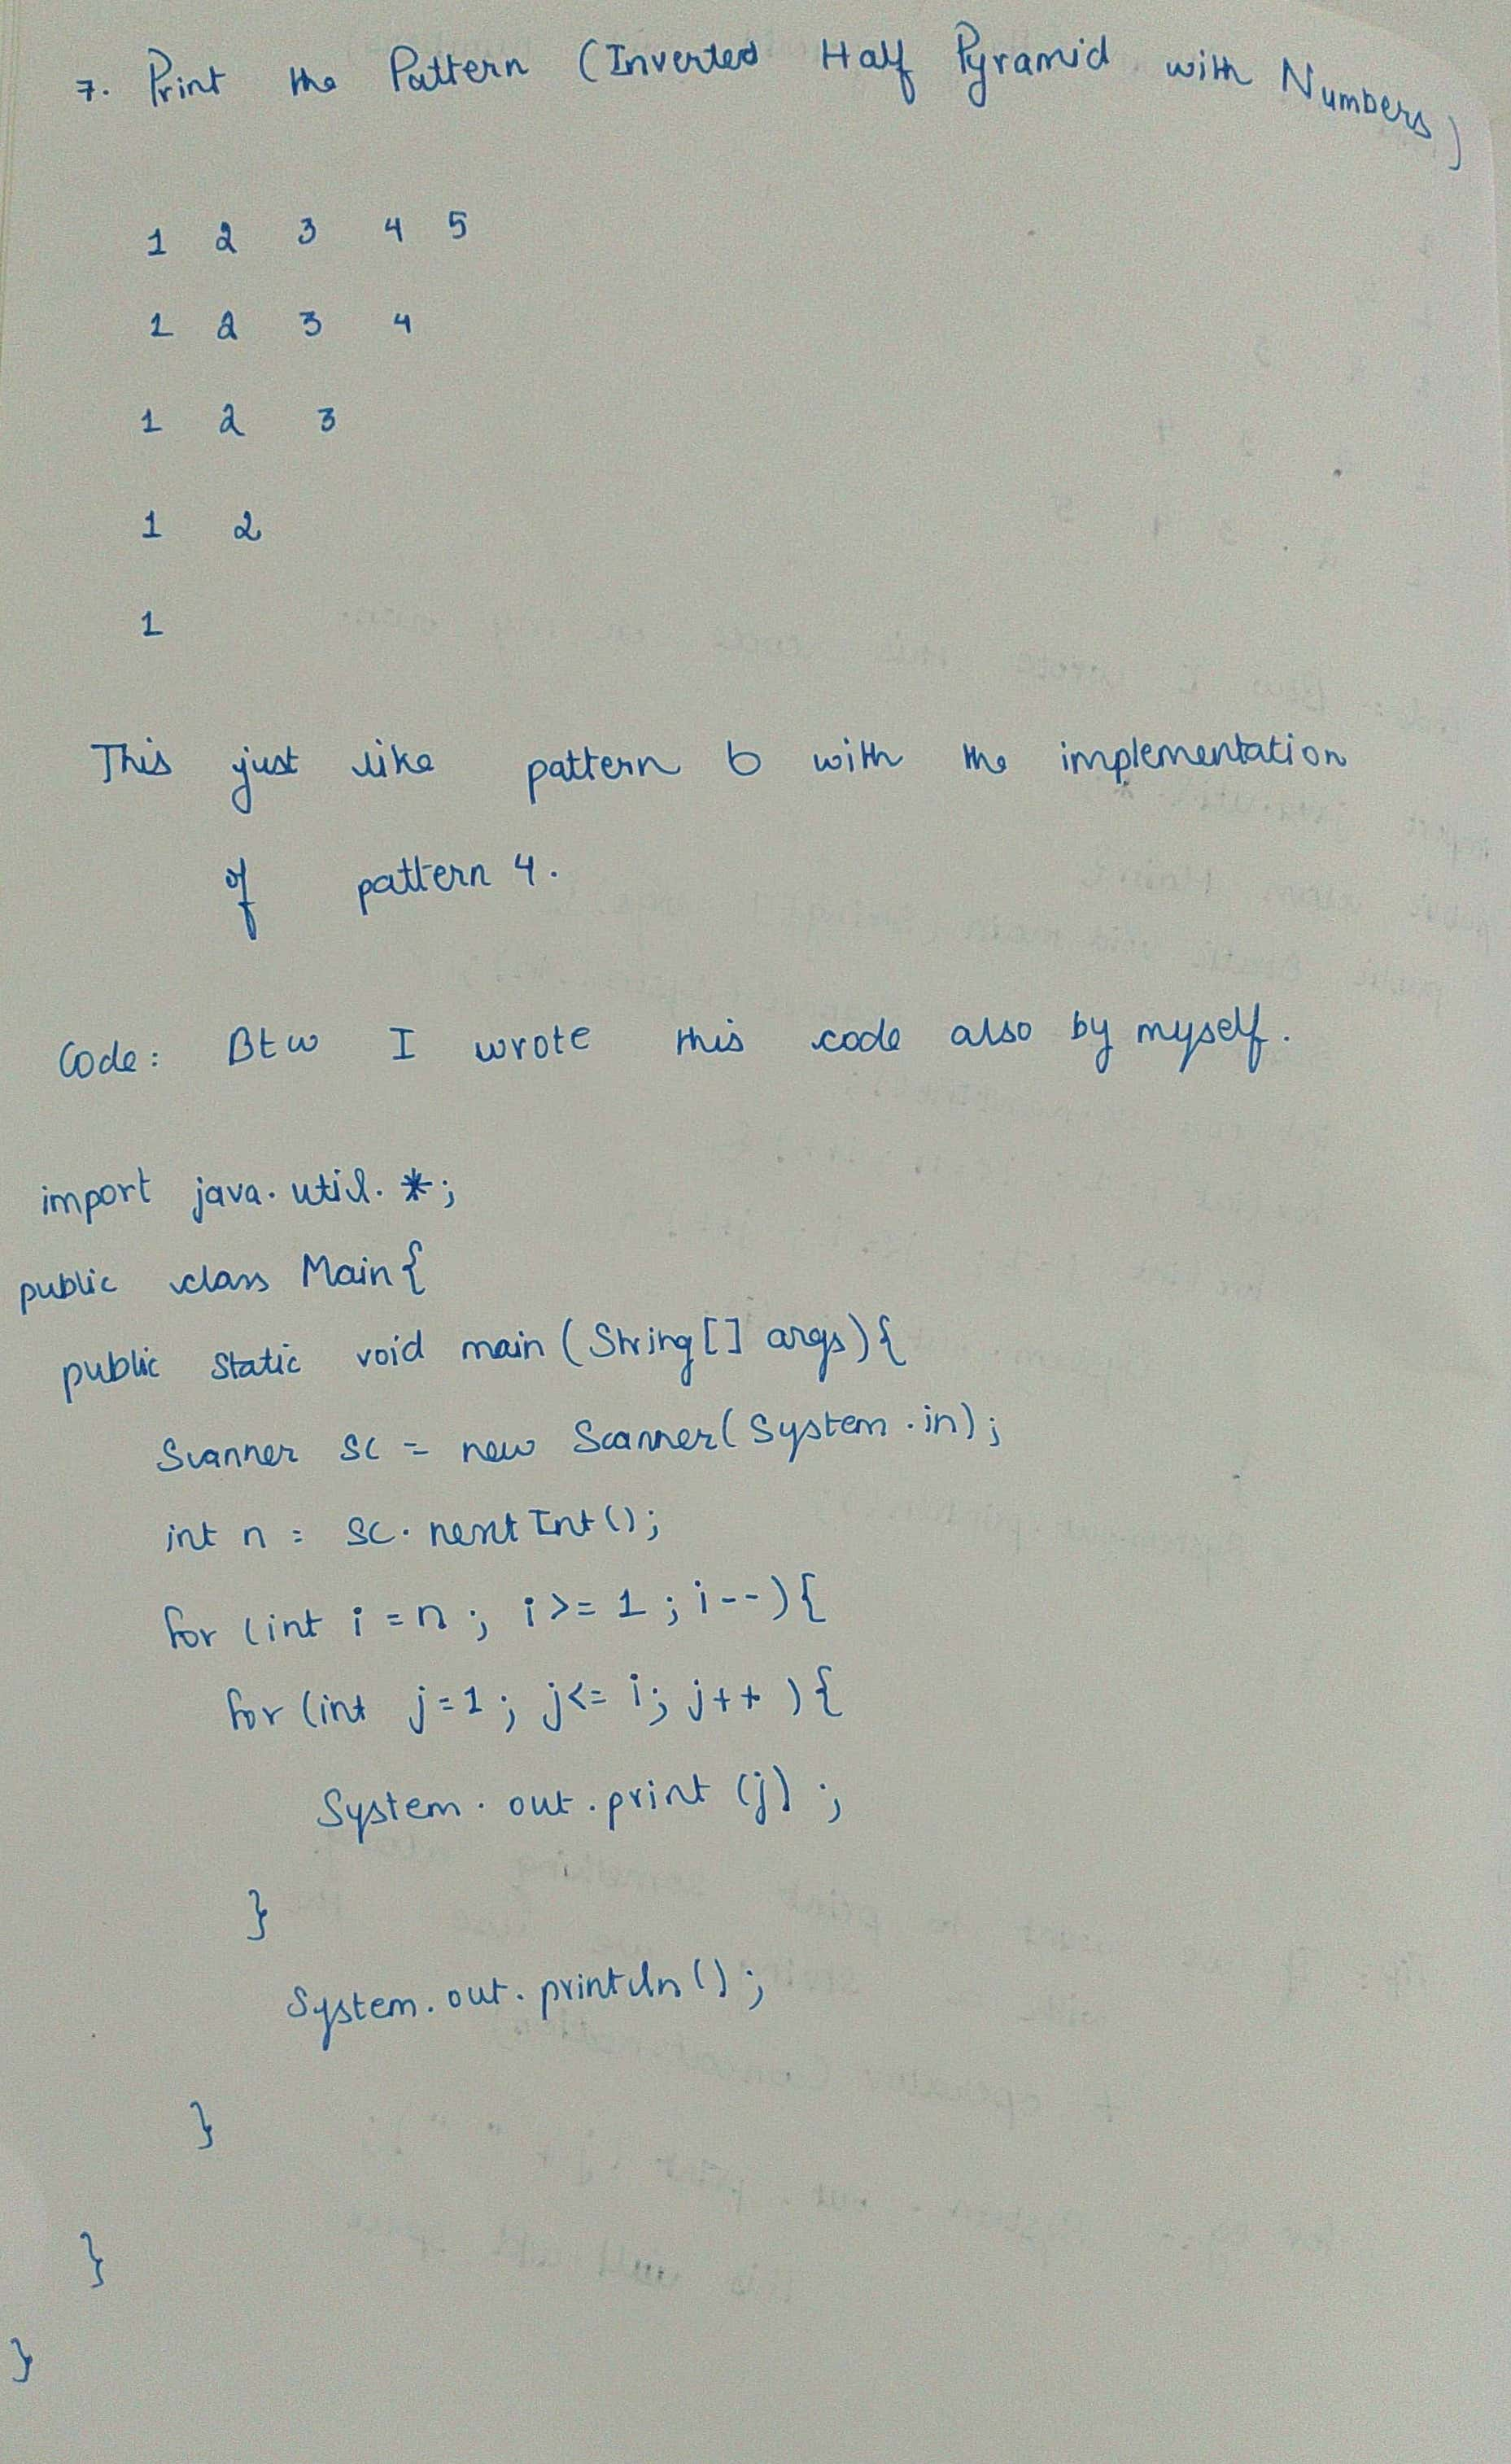 7. Print the Pattern (Inverted Half Pyramid with Numbers)
1 2 3 4 5
1 2 3 4
1 2 3
1 2
1
This just like pattern 6 with the implementation
of pattern 4.
Code: Btw I wrote this code also by myself.
import java.util.*;
public class Main{
public static void main (String[] args){
Scanner sc = new Scanner(System.in);
int n = sc.nextInt();
for (int i = n ; i >= 1 ; i--){
for (int j = 1 ; j <= i; j++ ){
System.out.print (j) ;
}
System.out.println() ;
}
}
}